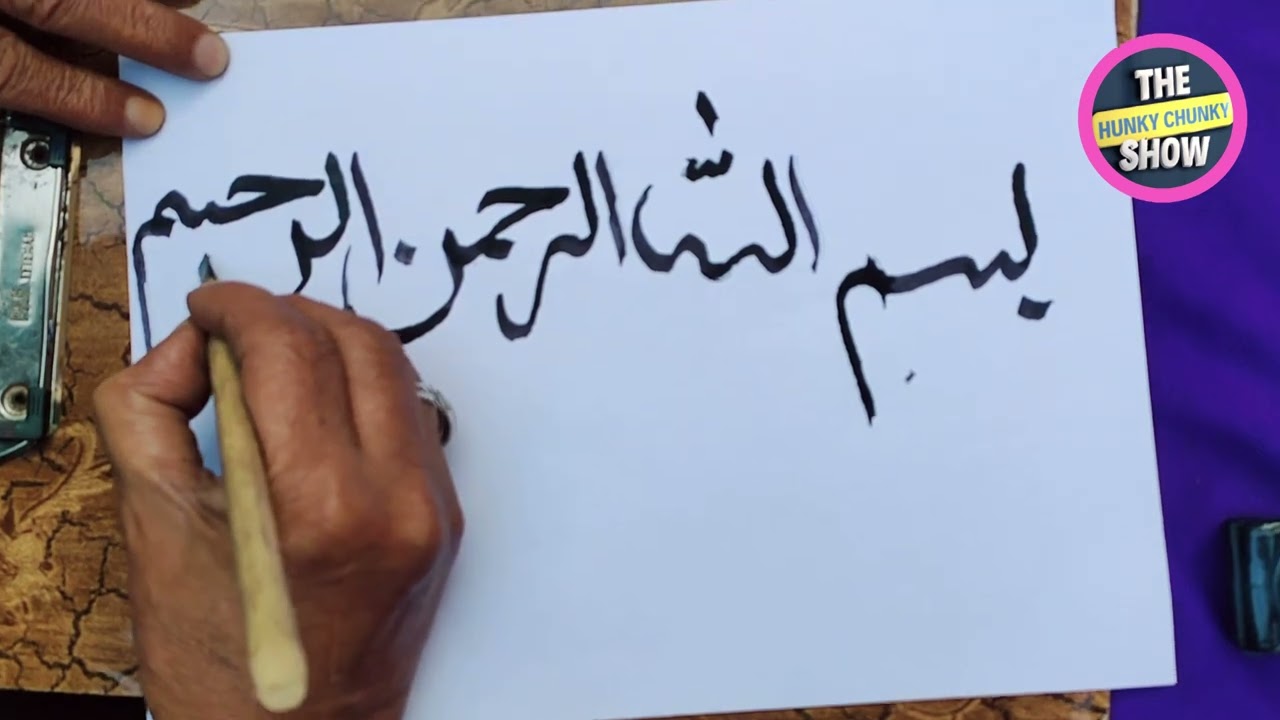 بسم الله الرحمن الرحيم
THE
HUNKY CHUNKY
SHOW